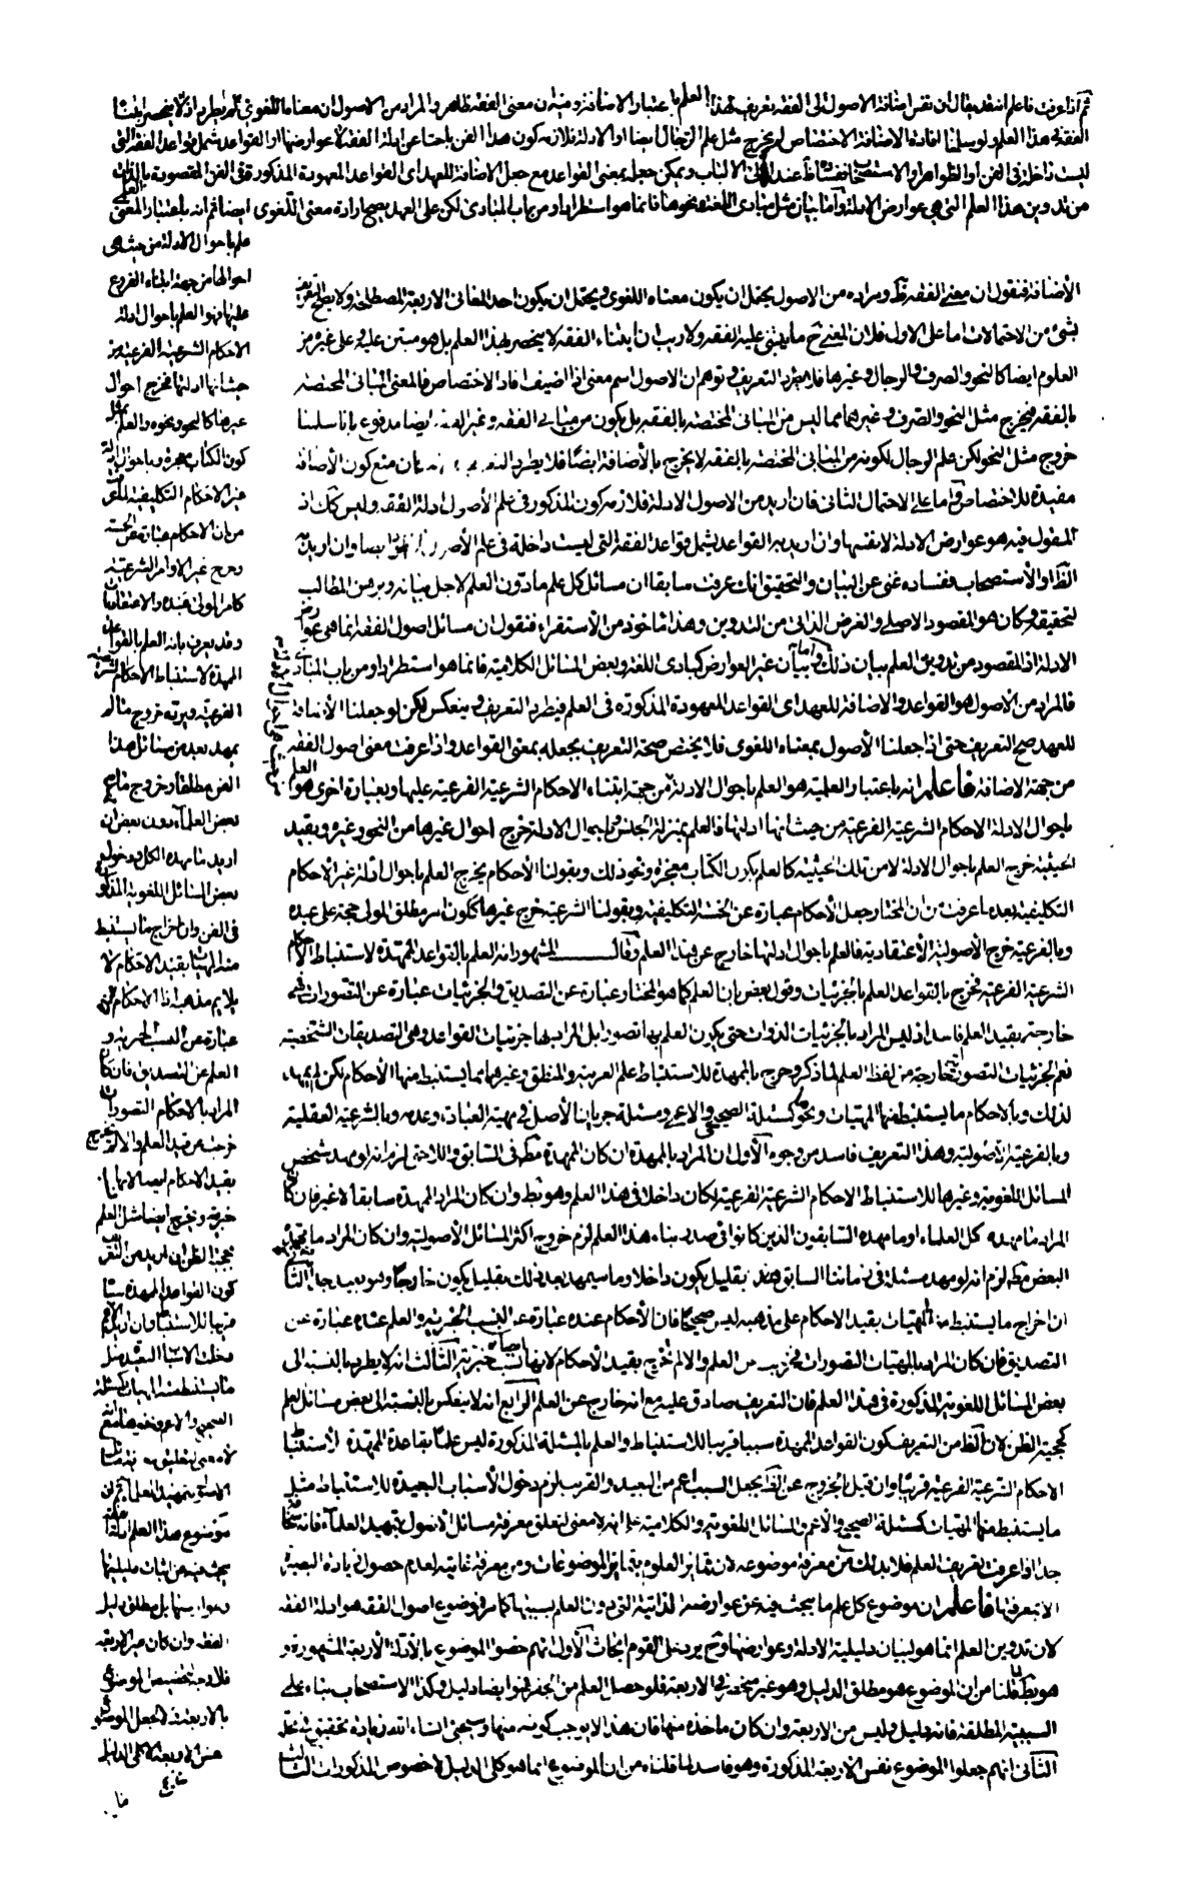 ثم اذا عرفت فاعلم انه قد يقال ان نفس اضافة الاصول الى الفقه تعريف لهذا العلم باعتبار الاضافة وفيه ان معنى الفقه ظاهر والمراد من الاصول ان معناها اللغوي فلم يطرد اذ لا ينحصر ابتناء
الفقه في هذا العلم ولو سلمنا افادة الاضافة الاختصاص لم يخرج مثل علم الرجال ايضا او الادلة فلازمه كون هذا الفن باحثا عن ادلة الفقه لا عوارضها او القواعد شمل قواعد الفقه التي
ليست داخلة في الفن او الظواهر او الاستصحاب ففساده عند اولى الالباب ويمكن جعله بمعنى القواعد مع جعل الاضافة للعهد اى القواعد المعهودة المذكورة فى الفن المقصودة بالذات
من تدوين هذا العلم التي هي عوارض الادلة واما بيان مثل مبادى اللغة ونحوها فانما هو استطراد او من باب المبادى لكن على العهد يصح ارادة معنى اللغوى ايضا ثم انه باعتبار المعنى العلمى
علم باحوال الادلة من حيث هى
احوالها من جهة ابتناء الفروع
عليها فهو العلم باحوال ادلة
الاحكام الشرعية الفرعية من
حيث انها ادلتها فخرج احوال
غيرها كالنحو ونحوه والعلم بمثل
كون الكتاب معجزة وباحوال ادلة
غير الاحكام التكليفية لما مر
من ان الاحكام عبارة عن الخمسة
وخرج غير الاوامر الشرعية
كامر المولى عبده والاعتقاديات
وقد يعرف بانه العلم بالقواعد
الممهدة لاستنباط الاحكام الشرعية
الفرعية ويرد خروج ما لم
يمهد بعد من مسائل هذا
الفن مطلقا وخروج ما مهده
بعض العلماء دون بعض ان
اريد ما مهده الكل ودخول
بعض المسائل اللغوية المذكورة
فى الفن وان اخراج ما يستنبط
منه المهيات بقيد الاحكام لا
يلايم مذهبه اذ الاحكام عنده
عبارة عن النسب الخبرية و
العلم عن التصديق فان كان
المراد بالاحكام التصورات
خرجت من قيد العلم والا لم تخرج
بقيد الاحكام ايضا لانها
خبرية ويخرج ايضا مثل العلم
بحجية الظن ان اريد من التعريف
كون القواعد الممهدة سببا
قريبا للاستنباط وان اريد الاعم
دخلت الاسباب البعيدة مثل
ما يستنبط منه المهيات كمسئلة
الصحيح والاعم
الاصولية بتمهيد العلماء ثم ان
موضوع هذا العلم ادلة الفقه
يبحث فيه عن اثبات دليليتها
وعوارضها بل مطلق دليل
الفقه وان كان غير الاربعة
فلا وجه لتخصيص الموضوع
بالاربعة ولا لجعل الموضوع
نفس الاربعة لا كلى الدليل
الأضافة فنقول ان معنى الفقه ظ ومراده من الاصول يحتمل ان يكون معناه اللغوى ويحتمل ان يكون احد المعانى الاربعة المصطلحة ولا يصح التعريف
بشئ من الاحتمالات اما على الاول فلان المعنى ح ما يبتنى عليه الفقه ولا ريب ان ابتناء الفقه لا ينحصر بهذا العلم بل هو مبتن عليه وعلى غيره من
العلوم ايضا كالنحو والصرف والرجال وغيرها فلا يطرد التعريف وتوهم ان الاصول اسم معنى اذا اضيف افاد الاختصاص فالمعنى المبانى المختصة
بالفقه فيخرج مثل النحو والصرف وغيرهما مما ليس من المبانى المختصة بالفقه بل يكون من مبانى الفقه وغير الفقه ايضا مدفوع بانا سلمنا
خروج مثل النحو لكن علم الرجال لكونه من المبانى المختصة بالفقه لا يخرج بالأضافة ايضا فلا يطرد مع ان منع كون الأضافة
مفيدة للاختصاص واما على الاحتمال الثانى فان اريد من الاصول الادلة فلازمه كون المذكور فى علم الأصول ادلة الفقه وليس كك اذ
المقول فيه هو عوارض الادلة لا نفسها وان اريد به القواعد يشمل قواعد الفقه التى ليست داخلة فى علم الأصول ايضا وان اريد به
الظ او الأستصحاب ففساده غنى عن البيان والتحقيق انك عرفت سابقا ان مسائل كل علم ما دوّن العلم لاجل بيانه وبرهن المطالب
لتحقيقه وكان هو المقصود الاصلى والغرض الذاتى من التدوين وهذا مأخوذ من الأستقراء فنقول ان مسائل اصول الفقه انما هى عوارض
الادلة اذ المقصود من تدوين العلم بيان ذلك واما بيان غير العوارض كمبادى اللغة وبعض المسائل الكلامية فانما هو استطراد او من باب المبادى
فالمراد من الأصول هو القواعد والاضافة للعهد اى القواعد المعهودة المذكورة فى العلم فيطرد التعريف وينعكس لكن لو جعلنا الأضافة
للعهد صح التعريف حتى اذا جعلنا الأصول بمعناه اللغوى فلا يختص صحة التعريف بجعله بمعنى القواعد واذا عرفت معنى اصول الفقه
من جهة الاضافة فاعلم انه باعتبار العلمية هو العلم باحوال الادلة من جهة ابتناء الاحكام الشرعية الفرعية عليها وبعبارة اخرى هو العلم
باحوال الادلة الاحكام الشرعية الفرعية من حيث انها ادلتها فالعلم بمنزلة الجنس وباحوال الادلة خرج احوال غيرها من النحو وغيره وبقيد
الحيثية خرج العلم باحوال الادلة لا من تلك الحيثية كالعلم بكون الكتاب معجزة ونحو ذلك وبقولنا الأحكام يخرج العلم باحوال ادلة غير الأحكام
التكليفية بعد ما عرفت من ان المختار جعل الأحكام عبارة عن الخمسة التكليفية وبقولنا الشرعية خرج غيرها ككون امر مطلق المولى حجة على عبده
وبالفرعية خرج الأصولية الأعتقادية فالعلم باحوال ادلتها خارج عن هذا العلم وقال المشهور انه العلم بالقواعد الممهدة لاستنباط الأحكام
الشرعية الفرعية فخرج بالقواعد العلم بالجزئيات وقول بعض بان العلم كما هو المختار عبارة عن التصديق والجزئيات عبارة عن التصورات فهى
خارجة بقيد العلم فاسد اذ ليس المراد بالجزئيات الذوات حتى يكون العلم بها تصورا بل المراد بها جزئيات القواعد وهى التصديقات الشخصية
نعم الجزئيات التصورية خارجة من لفظ العلم لما ذكر وخرج بالممهدة للاستنباط علم العربية والمنطق وغيرهما مما يستنبط منها الأحكام لكن لم يمهد
لذلك وبالأحكام ما يستنبط منها المهيات ونحوها كمسئلة الصحيح والاعم ومسئلة جريان الأصل فى مهية العبادة وعدمه وبالشرعية العقلية
وبالفرعية الاصولية وهذا التعريف فاسد من وجوه الأول ان المراد بالممهدة ان كان الممهدة مط فى السابق واللاحق لزم انه لو مهد شخص
المسائل اللغوية وغيرها للاستنباط الاحكام الشرعية الفرعية لكان داخلا فى هذا العلم وهو بط وان كان المراد الممهدة سابقا لا غير فان كان
المراد ما مهده كل العلماء او ما مهده السابقون الذين كانوا فى صدر بناء هذا العلم لزم خروج اكثر المسائل الأصولية وان كان المراد ما مهده
البعض مط لزم انه لو مهد مسئلة فى زماننا السابق بقليل يكون داخلا وما سيمهد بعد ذلك بقليل يكون خارجا وهو بعيد جدا الثانى
ان اخراج ما يستنبط منه المهيات بقيد الاحكام على مذهبه ليس صحيحا فان الأحكام عنده عبارة عن النسب الخبرية والعلم عنده عبارة عن
التصديق فان كان المراد بالمهيات التصورات فخرجت من العلم والا لم تخرج بقيد الأحكام لانها ايضا نسب خبرية الثالث انه لا يطرد بالنسبة الى
بعض المسائل اللغوية المذكورة فى هذا العلم فان التعريف صادق عليه مع انه خارج عن العلم الرابع انه لا ينعكس بالنسبة الى بعض مسائل العلم
كحجية الظن لان الظ من التعريف كون القواعد الممهدة سببا قريبا للاستنباط والعلم بالمسئلة المذكورة ليس علما بقاعدة الممهدة لاستنباط
الاحكام الشرعية الفرعية قريبا وان قيل بالخروج عن الظ بجعل السبب اعم من البعيد والقريب لزم دخول الأسباب البعيدة للاستنباط مثل
ما يستنبط منها المهيات كمسئلة الصحيح والأعم والمسائل اللغوية والكلامية على انه لا معنى لتعلق معرفة مسائل الأصول بتمهيد العلماء فانه سخيف
جدا اذا عرفت تعريف العلم فلا بد لك من معرفة موضوعه لان تمايز العلوم بتمايز الموضوعات ومن معرفة غايته لعدم حصول زيادة البصيرة
الا بمعرفتها فاعلم ان موضوع كل علم ما يبحث فيه عن عوارضه الذاتية التى دون العلم بسببها كما مر فموضوع اصول الفقه هو ادلة الفقه
لان تدوين العلم انما هو لبيان دليلية الادلة وعوارضها وح يرد على القوم ابحاث الأول انهم خصوا الموضوع بالأدلة الأربعة المشهورة و
هو بط لما قلنا من ان الموضوع هو مطلق الدليل وهو غير منحصر فى الاربعة فلو حصل العلم من الجفر فهو ايضا دليل وكذا الاستصحاب بناء على
السببية المطلقة فانه دليل وليس من الاربعة وان كان ماخذه منها فان هذا لا يوجب كونه منها وسيجئ انشاء الله زيادة تحقيق فى محله
الثانى انهم جعلوا الموضوع نفس الاربعة المذكورة وهو فاسد لما قلناه من ان الموضوع انما هو كلى الدليل لا خصوص المذكورات الثالث